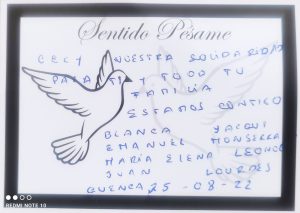 Sentido Pésame
CECY NUESTRA SOLIDARIDAD
PARA TI Y TODO TU
FAMILIA
ESTAMOS CONTIGO
BLANCA YACQUI
EMANUEL MONSERRA
MARÍA ELENA LEONOR
JUAN LOURDES
CUENCA 25-08-22
REDMI NOTE 10